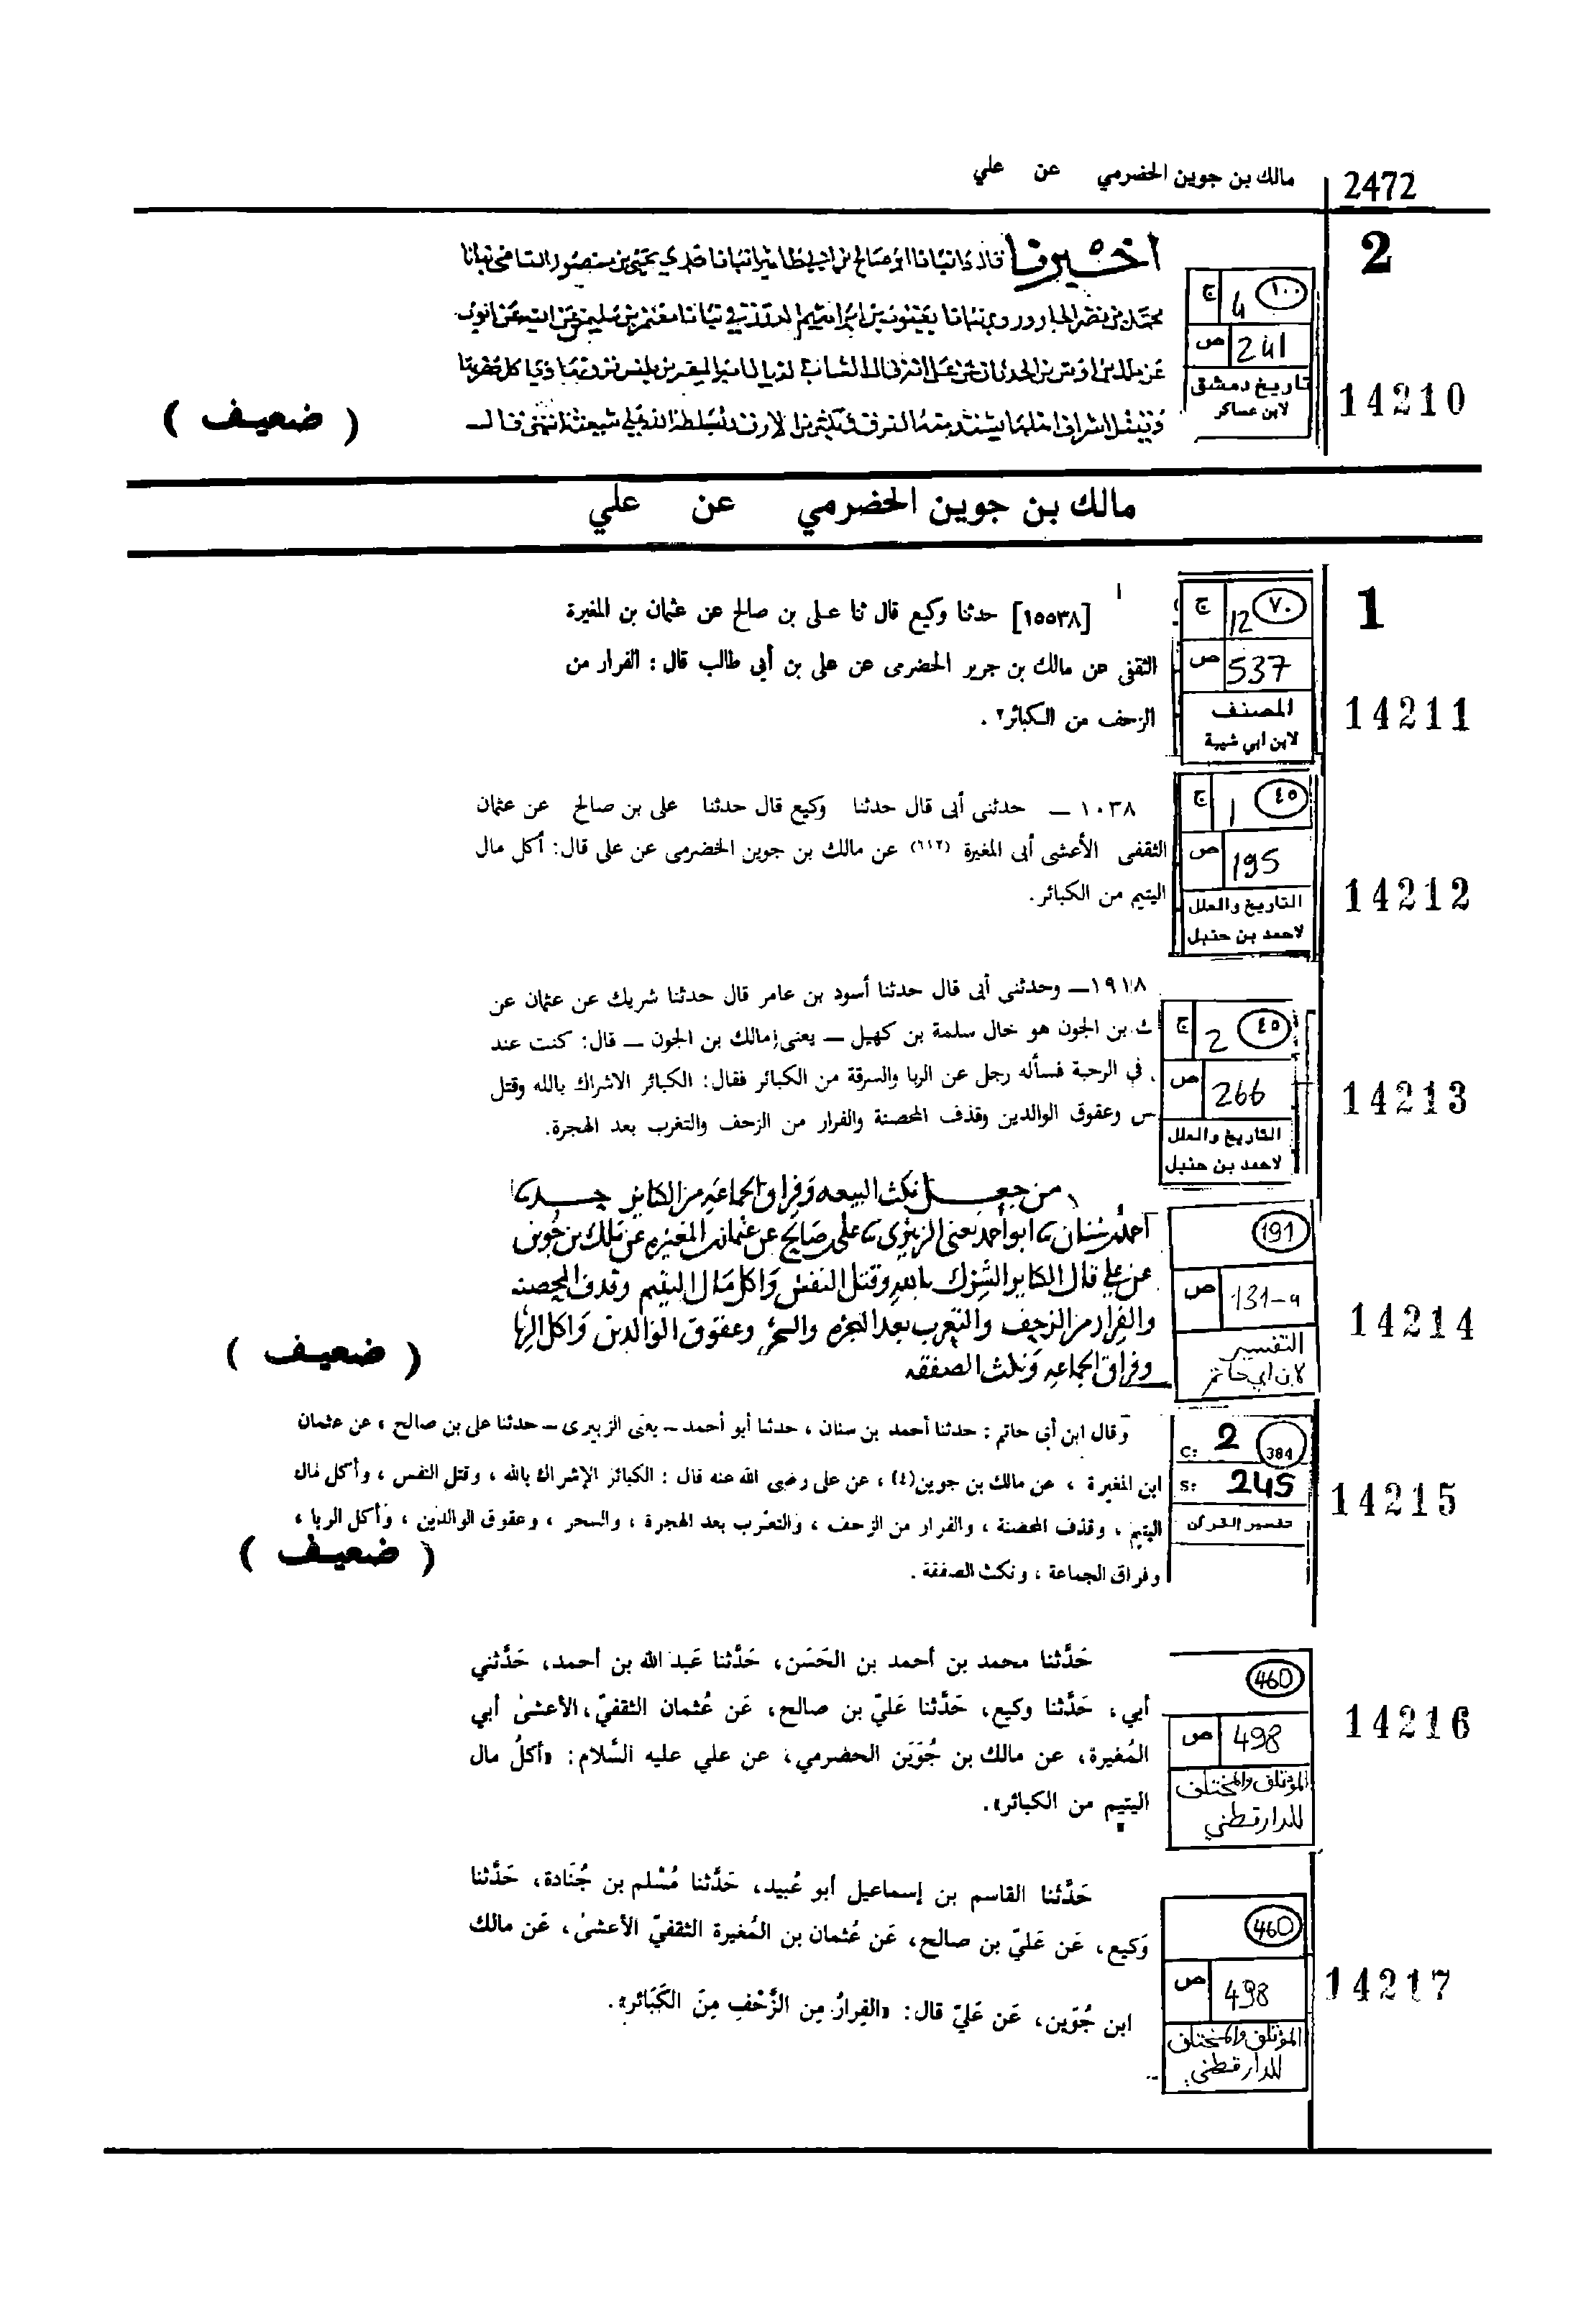 2472 مالك بن جوين الحضرمي عن علي
2
اخبرنا
١٠٠ ج 4
ص 241
تاريخ دمشق
لابن عساكر
14210
( ضعيف )
مالك بن جوين الحضرمي عن علي
1
٧٠ ج 12
ص 537
المصنف
لابن ابي شيبة
14211
[١٥٥٣٨] حدثنا وكيع قال ثنا على بن صالح عن عثمان بن المغيرة
الثقفى عن مالك بن جرير الحضرمى عن على بن أبي طالب قال : الفرار من
الزحف من الكبائر٢ .
٤٥ ج 1
ص 195
التاريخ والعلل
لاحمد بن حنبل
14212
١٠٣٨ — حدثنى أبى قال حدثنا وكيع قال حدثنا على بن صالح عن عثمان
الثقفى الأعشى أبى المغيرة (١١٢) عن مالك بن جوين الحضرمى عن على قال: أكل مال
اليتيم من الكبائر.
٤٥ ج 2
ص 266
التاريخ والعلل
لاحمد بن حنبل
14213
١٩١٨— وحدثنى أبى قال حدثنا أسود بن عامر قال حدثنا شريك عن عثمان عن
ك بن الجون هو خال سلمة بن كهيل — يعنى مالك بن الجون — قال: كنت عند
في الرحبة فسأله رجل عن الربا والسرقة من الكبائر فقال: الكبائر الاشراك بالله وقتل
س وعقوق الوالدين وقذف المحصنة والفرار من الزحف والتغرب بعد الهجرة.
191
ص 131-a
التفسير
لابن ابي حاتم
14214
من جعل نكث البيعه وفراق الجماعه من الكبائر حدثنا
احمد بن سنان ثنا ابو احمد يعنى الزبيرى ثنا على بن صالح عن عثمان بن المغيره عن ملك بن جوين
عن علي قال الكبائر الشرك بالله وقتل النفس واكل مال اليتيم وقذف المحصنه
والفرار من الزحف والتعرب بعد الهجره والسحر وعقوق الوالدين واكل الربا
وفراق الجماعه ونكث الصفقه
( ضعيف )
384 C: 2
S: 245
تفسير القرآن
14215
وقال ابن أبى حاتم : حدثنا أحمد بن سنان ، حدثنا أبو أحمد — يعنى الزبيرى — حدثنا على بن صالح ، عن عثمان
ابن المغيرة ، عن مالك بن جوين(٤) ، عن على رضى الله عنه قال : الكبائر الإشراك بالله ، وقتل النفس ، وأكل مال
اليتيم ، وقذف المحصنة ، والفرار من الزحف ، والتعرّب بعد الهجرة ، والسحر ، وعقوق الوالدين ، وأكل الربا ،
وفراق الجماعة ، ونكث الصفقة .
( ضعيف )
460
ص 498
المؤتلف والمختلف
للدارقطني
14216
حَدَّثنا محمد بن أحمد بن الحَسَن، حَدَّثنا عَبد الله بن أحمد، حَدَّثني
أبي، حَدَّثنا وكيع، حَدَّثنا عَليّ بن صالح، عَن عُثمان الثقفيّ، الأعشىٰ أبي
المُغيرة، عن مالك بن جُوَيَن الحضرمي، عن علي عليه السَّلام: «أكلُ مال
اليتيم من الكبائر».
460
ص 498
المؤتلف والمختلف
للدارقطني
14217
حَدَّثنا القاسم بن إسماعيل أبو عُبيد، حَدَّثنا مُسْلم بن جُنَادة، حَدَّثنا
وَكيع، عَن عَليّ بن صالح، عَن عُثمان بن المُغيرة الثقفيّ الأعشىٰ، عَن مالك
ابن جُوَين، عَن عَليّ قال: «الفِرارُ مِن الزَّحْفِ مِنَ الكَبَائر».